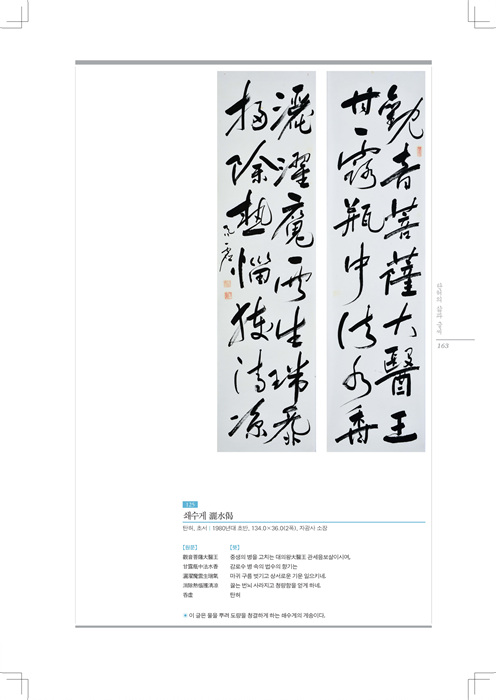 觀音菩薩大醫王
甘露瓶中法水香
灑濯魔雲生瑞氣
掃除熱惱獲清凉
呑虛
탄허의 삶과
163
125
쇄수게 灑水偈
탄허, 초서 | 1980년대 초반, 134.0×36.0(2폭), 자광사 소장
[원문] [뜻]
觀音菩薩大醫王 중생의 병을 고치는 대의왕大醫王 관세음보살이시여,
甘露瓶中法水香 감로수 병 속의 법수의 향기는
灑濯魔雲生瑞氣 마귀 구름 벗기고 상서로운 기운 일으키네.
消除熱惱獲清凉 끓는 번뇌 사라지고 청량함을 얻게 하네.
呑虛 탄허
* 이 글은 물을 뿌려 도량을 청결하게 하는 쇄수게의 게송이다.